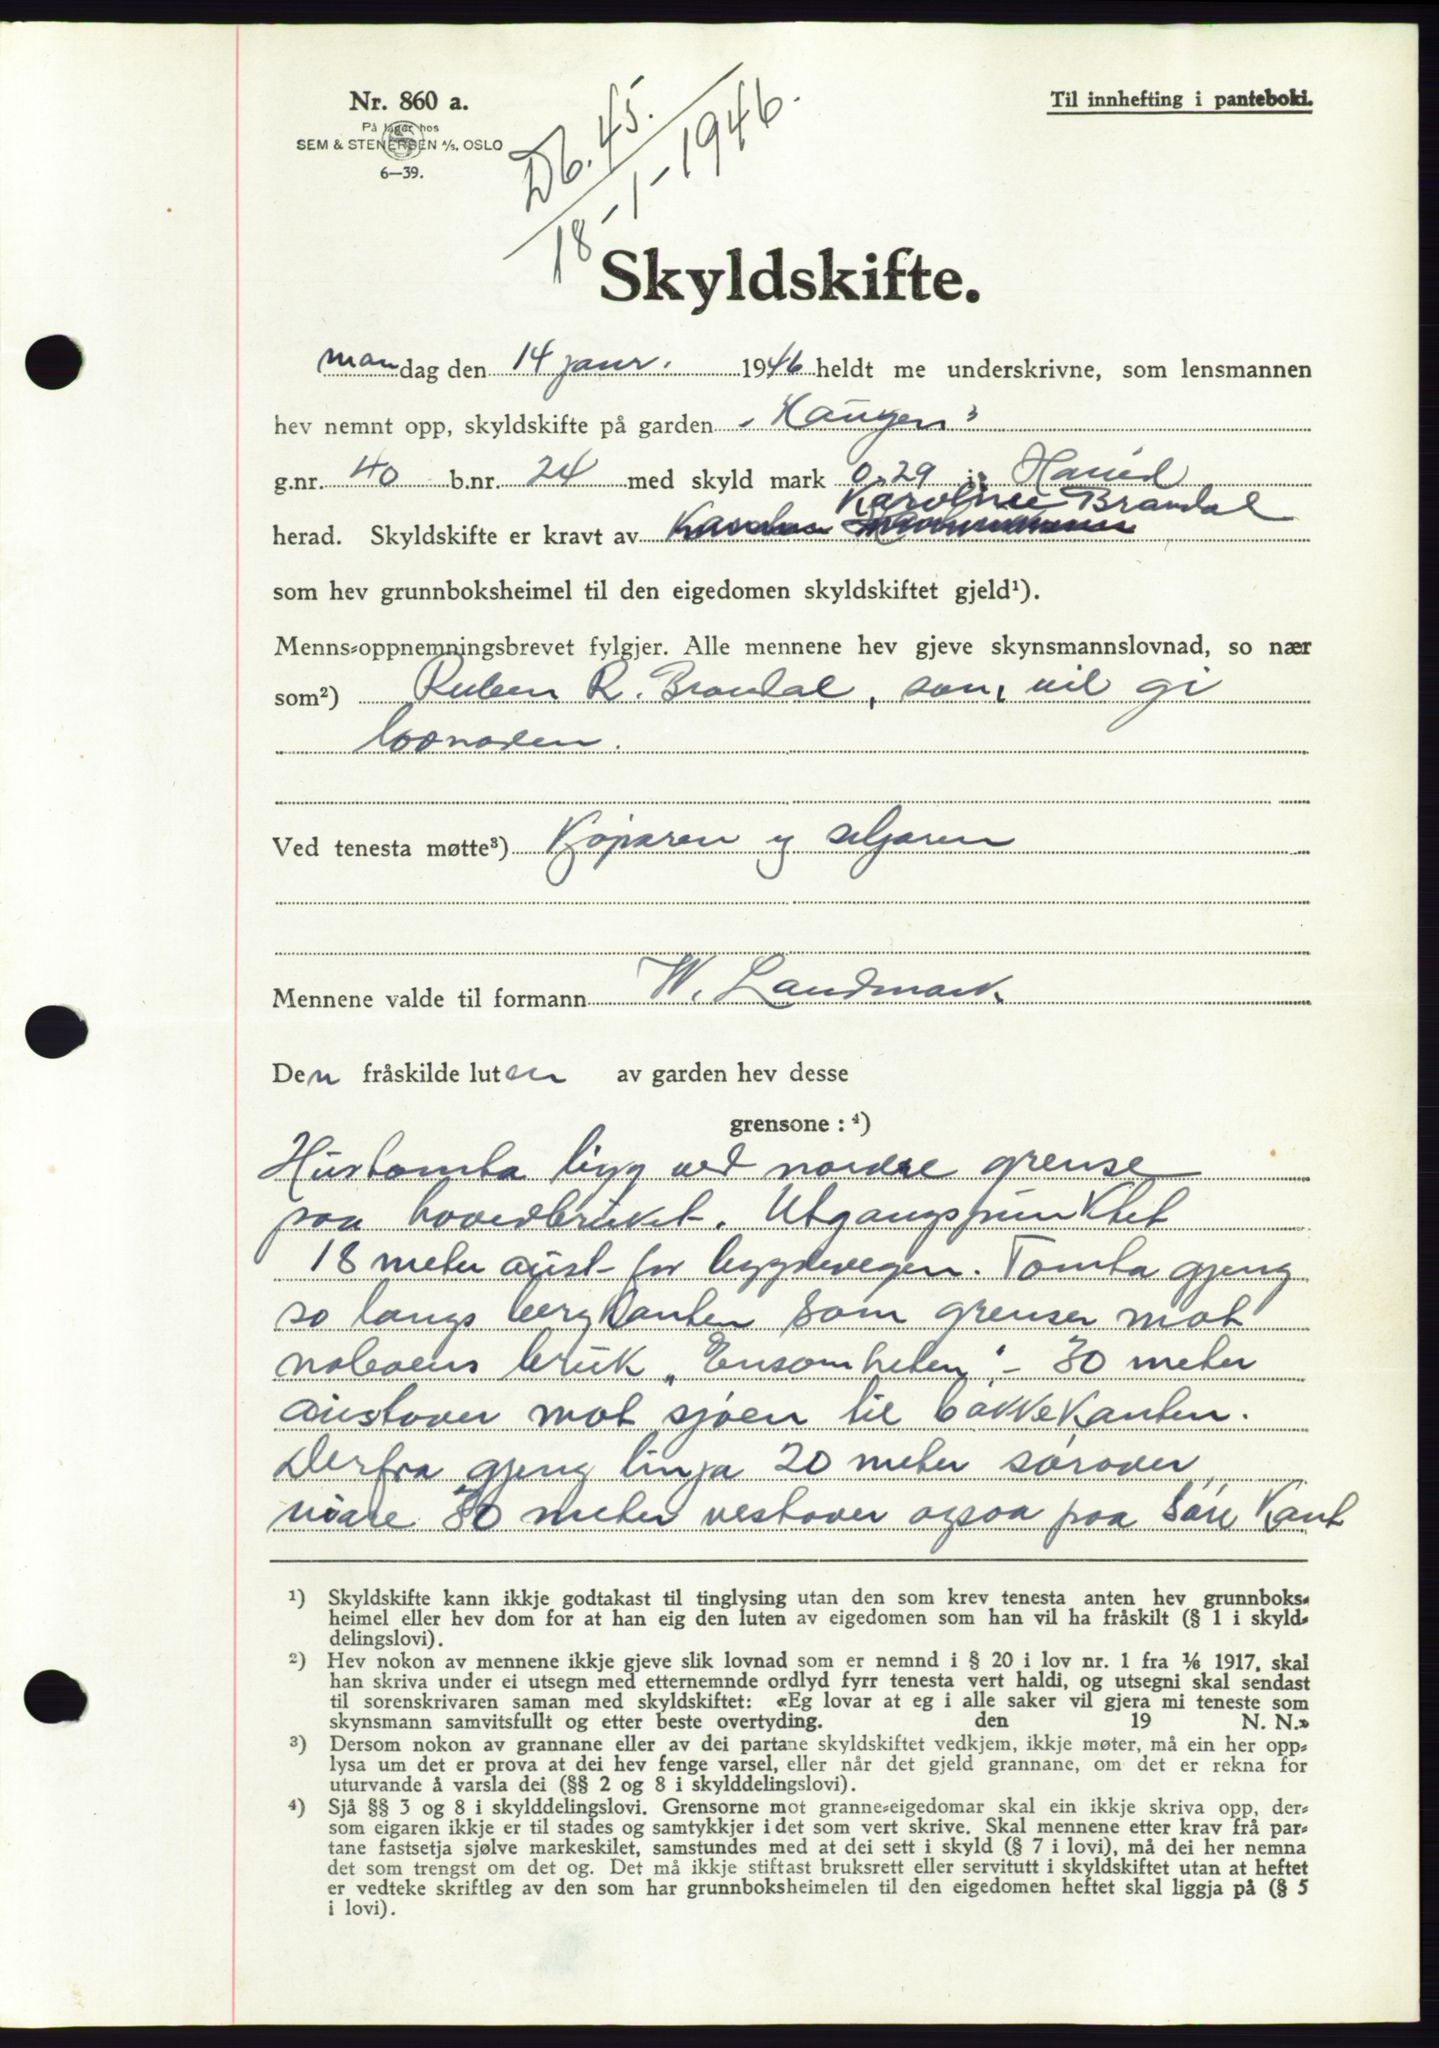 Nr. 860 a.
På lager hos
SEM & STENERSEN A/S, OSLO
6—39.
Db. 45.
18-1-1946.
Til innhefting i panteboki.
Skyldskifte.
mandag den 14 janr. 1946 heldt me underskrivne, som lensmannen
hev nemnt opp, skyldskifte på garden "Haugen"
g.nr. 40 b.nr. 24 med skyld mark 0.29 i Hareid
Karoline Brandal
herad. Skyldskifte er kravt av
som hev grunnboksheimel til den eigedomen skyldskiftet gjeld¹).
Menns-oppnemningsbrevet fylgjer. Alle mennene hev gjeve skynsmannslovnad, so nær
som²) Ruben R. Brandal, som vil gi
lovnaden.
Ved tenesta møtte³) Kjøparen og seljaren
Mennene valde til formann W. Landmark
Den fråskilde luten av garden hev desse
grensone : ⁴)
Hustomta ligg ved nordre grense
paa hovedbruket. Utgangspunktet
18 meter aust for bygdevegen. Tomta gjeng
so langs bergkanten som grenser mot
naboens bruk "Ensomheten" - 30 meter
austover mot sjøen til bakkekanten.
Derfra gjeng linja 20 meter sørover,
vidare 30 meter vestover ogsaa paa søre kant
¹) Skyldskifte kann ikkje godtakast til tinglysing utan den som krev tenesta anten hev grunnboks-
heimel eller hev dom for at han eig den luten av eigedomen som han vil ha fråskilt (§ 1 i skyld-
delingslovi).
²) Hev nokon av mennene ikkje gjeve slik lovnad som er nemnd i § 20 i lov nr. 1 fra 1/6 1917, skal
han skriva under ei utsegn med etternemnde ordlyd fyrr tenesta vert haldi, og utsegni skal sendast
til sorenskrivaren saman med skyldskiftet: «Eg lovar at eg i alle saker vil gjera mi teneste som
skynsmann samvitsfullt og etter beste overtyding. den 19 N. N.»
³) Dersom nokon av grannane eller av dei partane skyldskiftet vedkjem, ikkje møter, må ein her opp-
lysa um det er prova at dei hev fenge varsel, eller når det gjeld grannane, om det er rekna for
uturvande å varsla dei (§§ 2 og 8 i skylddelingslovi).
⁴) Sjå §§ 3 og 8 i skylddelingslovi. Grensorne mot granne-eigedomar skal ein ikkje skriva opp, der-
som eigaren ikkje er til stades og samtykkjer i det som vert skrive. Skal mennene etter krav frå par-
tane fastsetja sjølve markeskilet, samstundes med at dei sett i skyld (§ 7 i lovi), må dei her nemna
det som trengst om det og. Det må ikkje stiftast bruksrett eller servitutt i skyldskiftet utan at heftet
er vedteke skriftleg av den som har grunnboksheimelen til den eigedomen heftet skal liggja på (§ 5
i lovi).